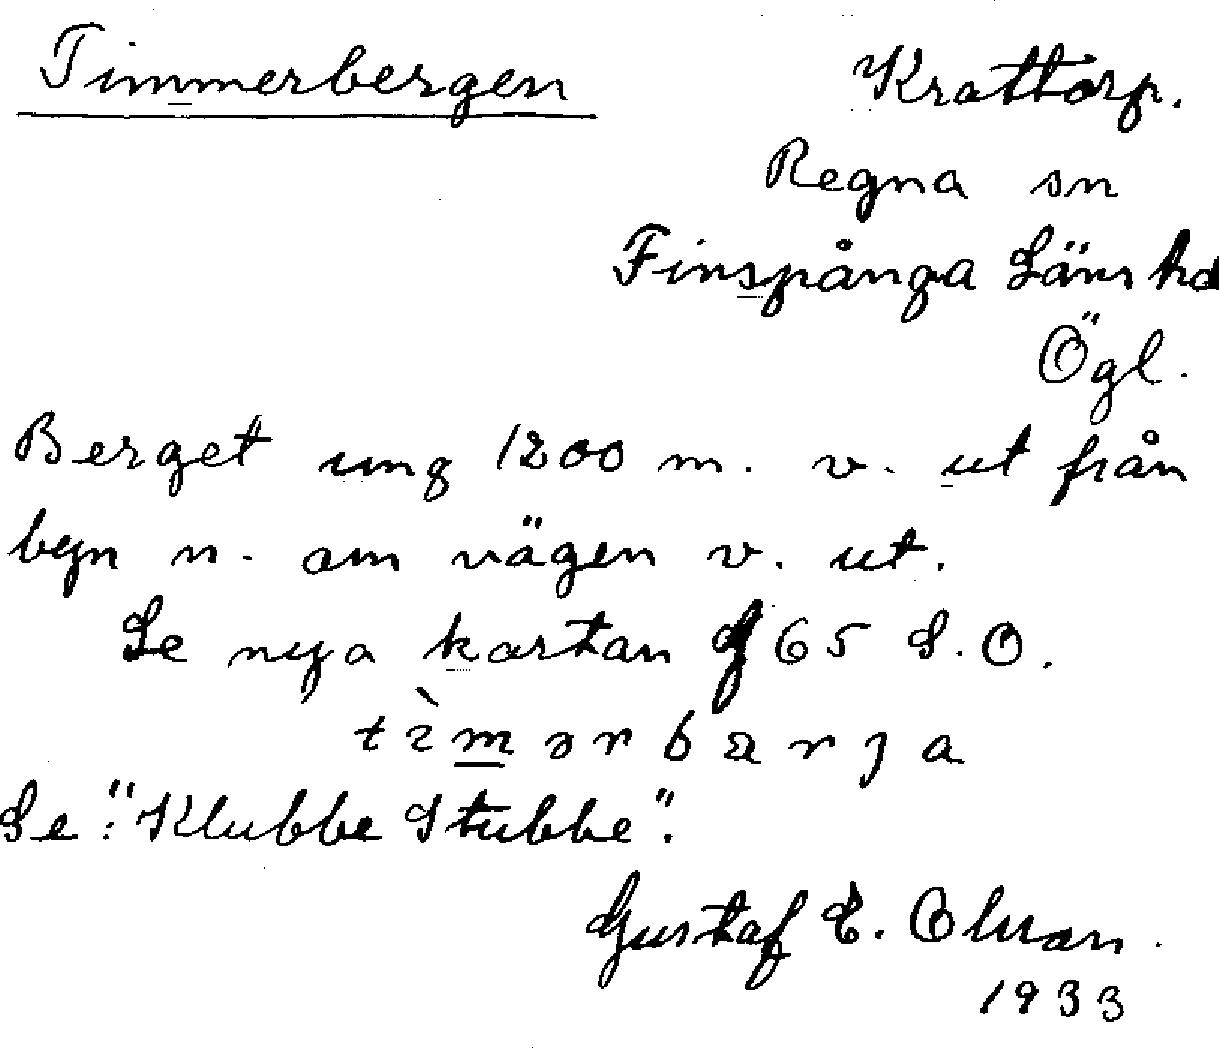 Timmerbergen
Krattorp.
Regna sn
Finspånga Läns hd
Ögl.
Berget ung 1200 m. v. ut från
byn n. om vägen v. ut.
Se nya kartan 65 S.O.
Se: "Klubbe Stubbe".
Gustaf E. Olsson.
1933